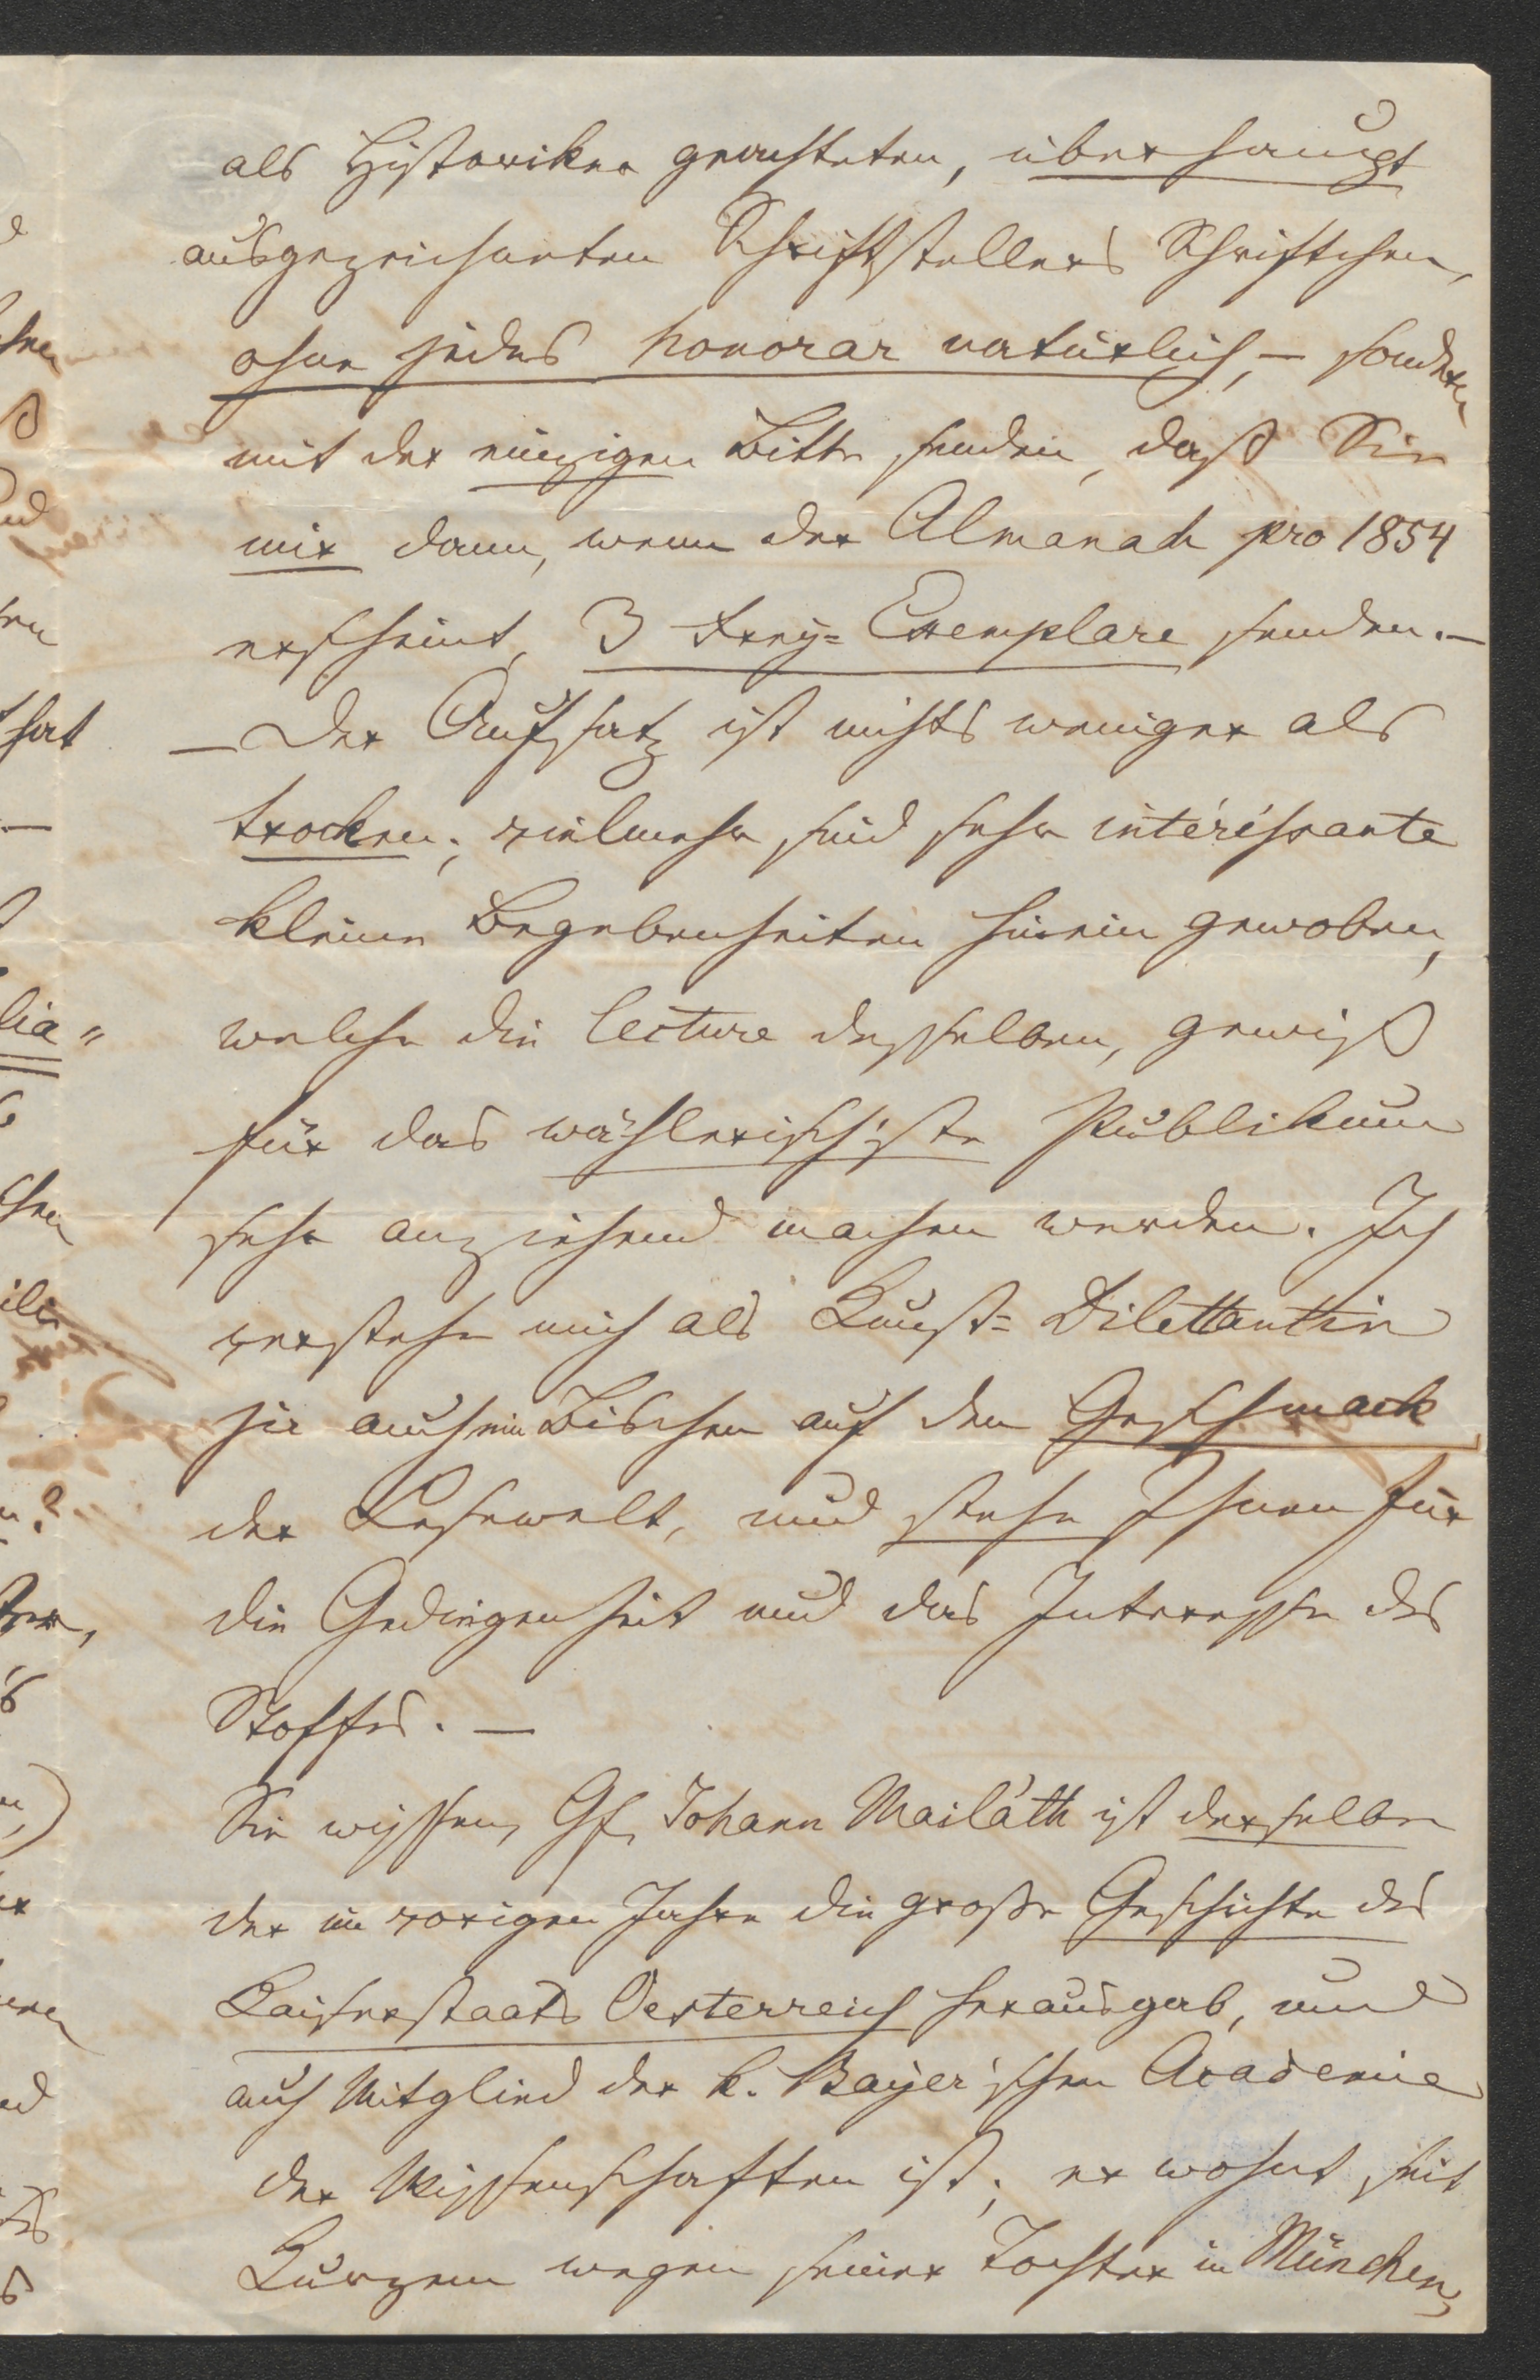 als Historiker geachteten, überhaupt
ausgezeichneten Schriftstellers Schriftchen,
ohne jedes honorar natürlich, – sondern
mit der einzigen Bitte senden, daß Sie
mir dann, wenn der Almanach pro 1854
erscheint, 3 Frey=Exemplare senden. –
– Der Aufsatz ist nichts weniger als
trocken; vielmehr sind sehr intéréssante
kleine Begebenheiten hinein gewoben,
welche die lecture desselben, gewiß
für das wählerischste Publikum
sehr anziehend machen werden. Ich
verstehe mich als Kunst=Dilettantin
ja auch ein Bischen auf den Geschmack
der Lesewelt, und stehe Ihnen für
die Gediegenheit und das Interesse des
Stoffes. –
Sie wissen, Gf. Johann Mailáth ist derselbe
der im vorigen Jahre die große Geschichte des
Kaiserstaats Oesterreich herausgab, und
auch Mitglied der k. Bayer'schen Academie
der Wissenschaften ist; er wohnt seit
Kurzem wegen seiner Tochter in München,